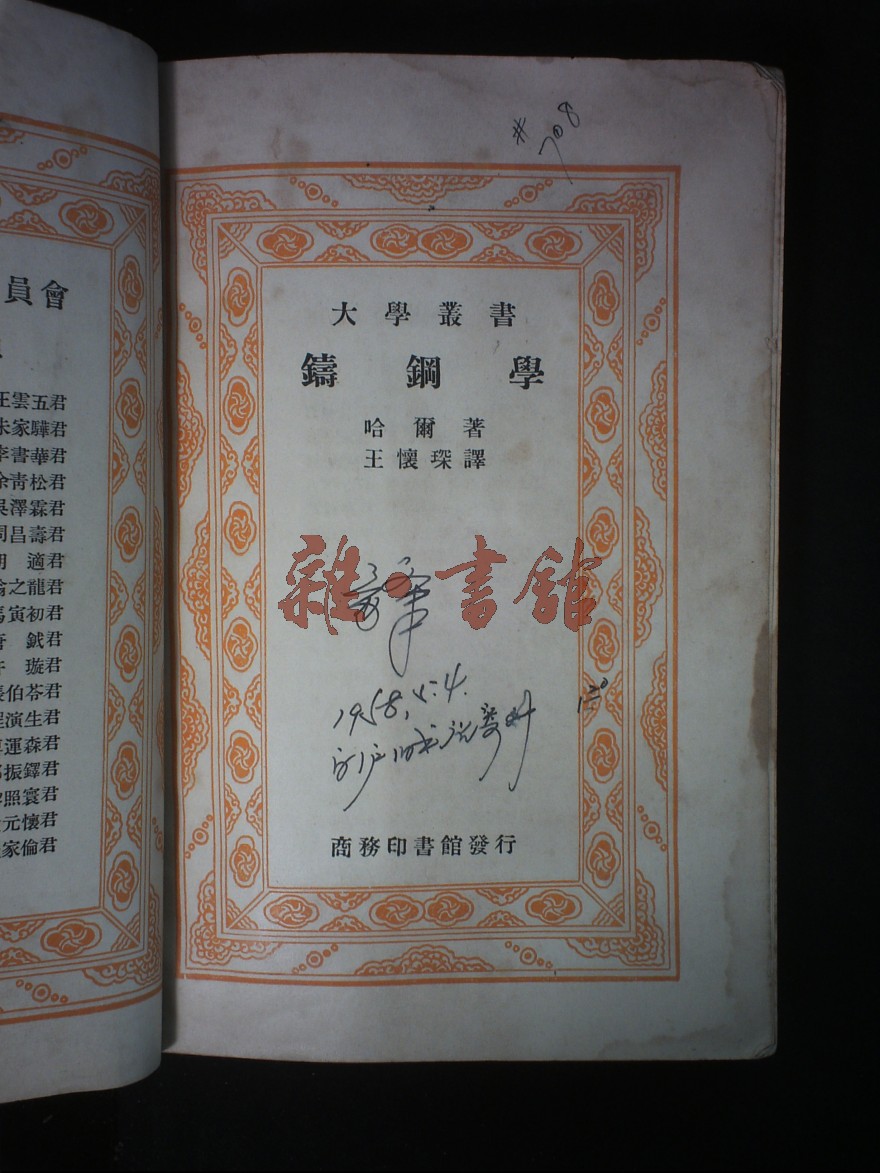 員會
王雲五君
朱家驊君
李書華君
余青松君
吳澤霖君
周昌壽君
胡適君
翁之龍君
馬寅初君
唐鉞君
許璇君
張伯苓君
程演生君
運森君
鄭振鐸君
黎照寰君
元懷君
家倫君
#708
大學叢書
鑄鋼學
哈爾著
王懷琛譯
雜·書館
1958,5.4.
商務印書館發行